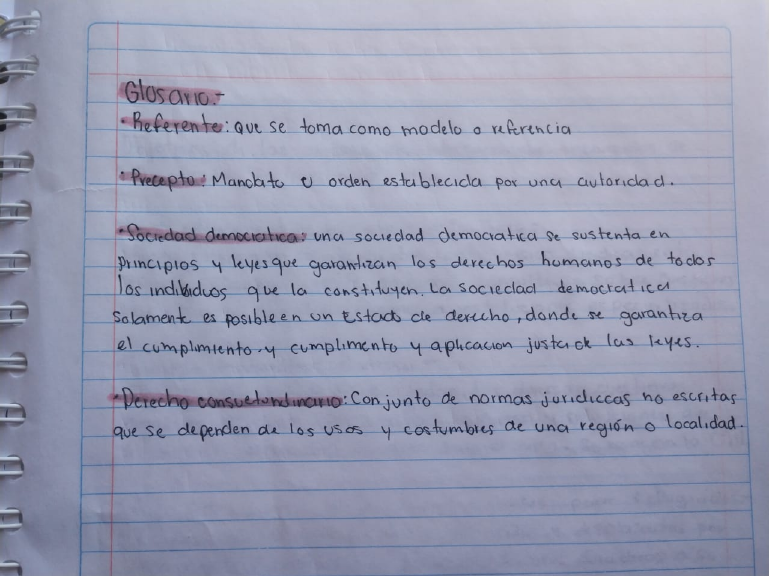 Glosario.-
·Referente: que se toma como modelo o referencia
·Precepto: Mandato u orden establecida por una autoridad.
·Sociedad democratica: una sociedad democratica se sustenta en
principios y leyes que garantizan los derechos humanos de todos
los individuos que la constituyen. La sociedad democratica
Solamente es posible en un Estado de derecho, donde se garantiza
el cumplimiento y cumplimento y aplicacion justa de las leyes.
·Derecho consuetundinario: Conjunto de normas juridiccas no escritas
que se dependen de los usos y costumbres de una región o localidad.